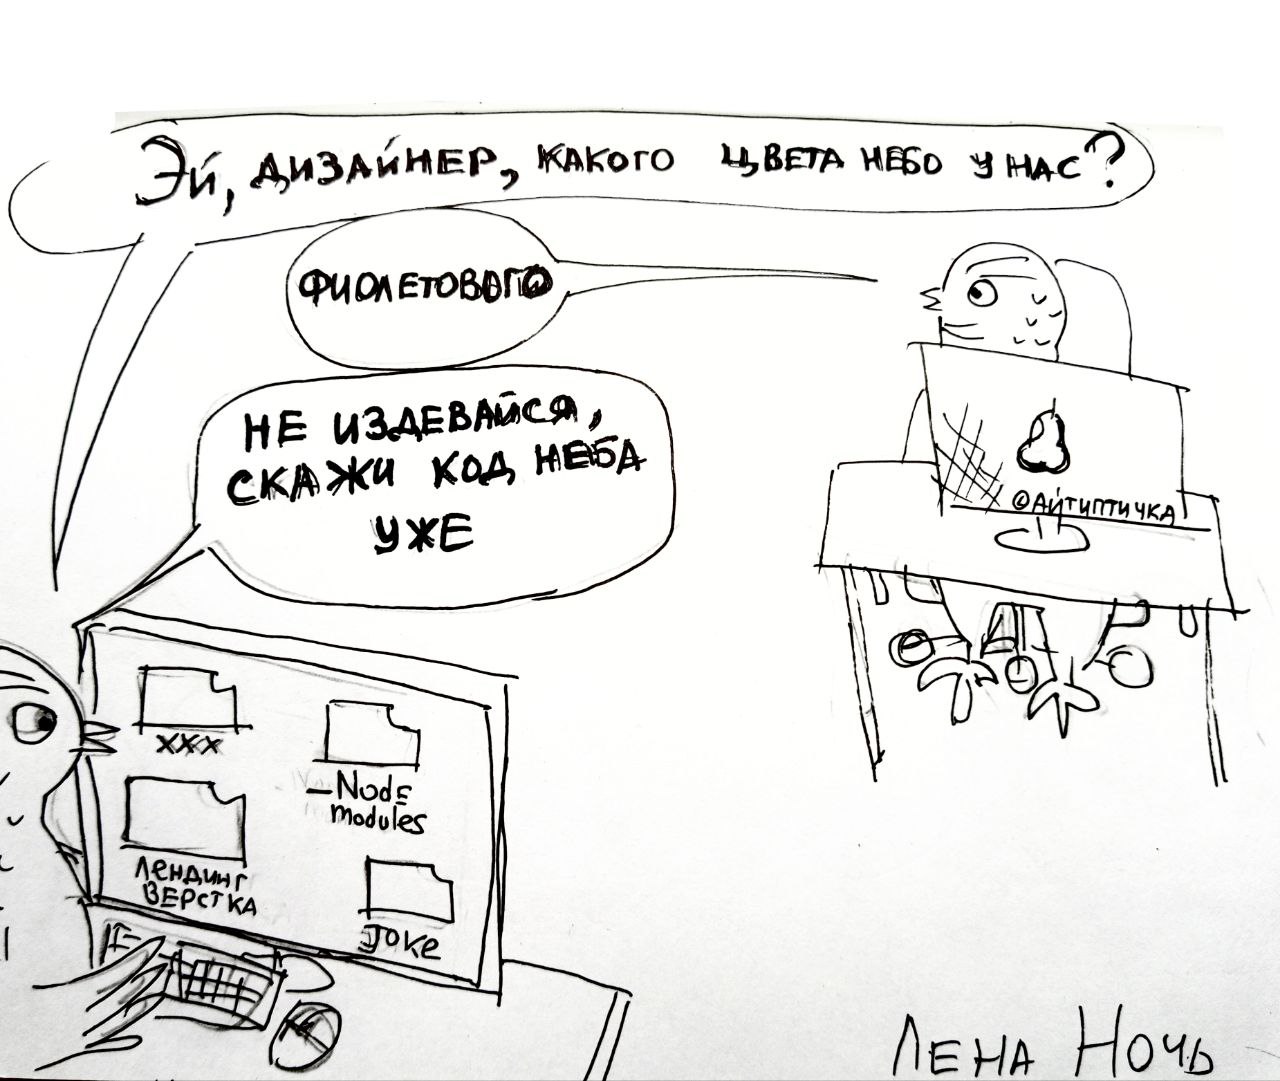 Эй, дизайнер, какого цвета небо у нас?
Фиолетового
Не издевайся,
скажи код неба
уже
©Айтиптичка
xxx
_Node
modules
Лендинг
верстка
Joke
Лена Ночь